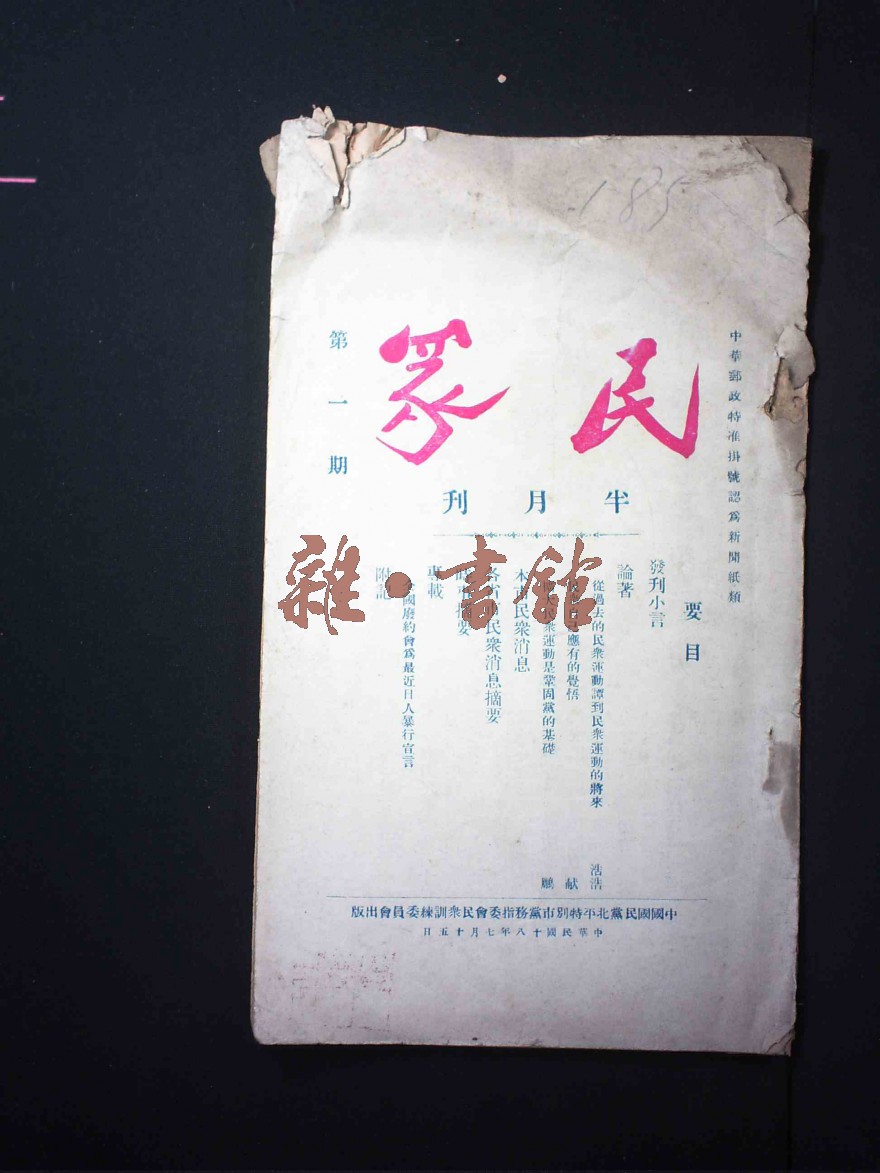 185
中華郵政特准掛號認爲新聞紙類
民眾
半月刊
第一期
要目
發刊小言
論著
從過去的民衆運動譚到民衆運動的將來 浩浩
應有的覺悟 献
民衆運動是鞏固黨的基礎 鵬
本市民衆消息
各省市民衆消息摘要
摘要
專載
國廢約會爲最近日人暴行宣言
附記
雜·書館
中國國民黨北平特別市黨務指委會民衆訓練委員會出版
中華民國十八年七月十五日